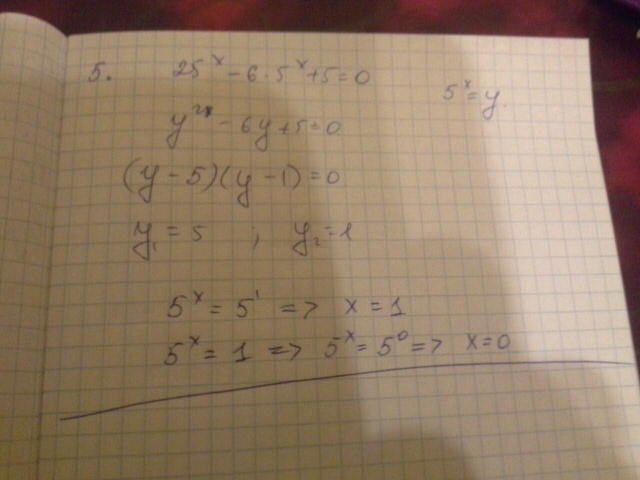 5. 25^x - 6·5^x + 5 = 0
5^x = y.
y^2x - 6y + 5 = 0
(y - 5)(y - 1) = 0
y₁ = 5 ; y₂ = 1
5^x = 5^1 => x = 1
5^x = 1 => 5^x = 5^0 => x = 0